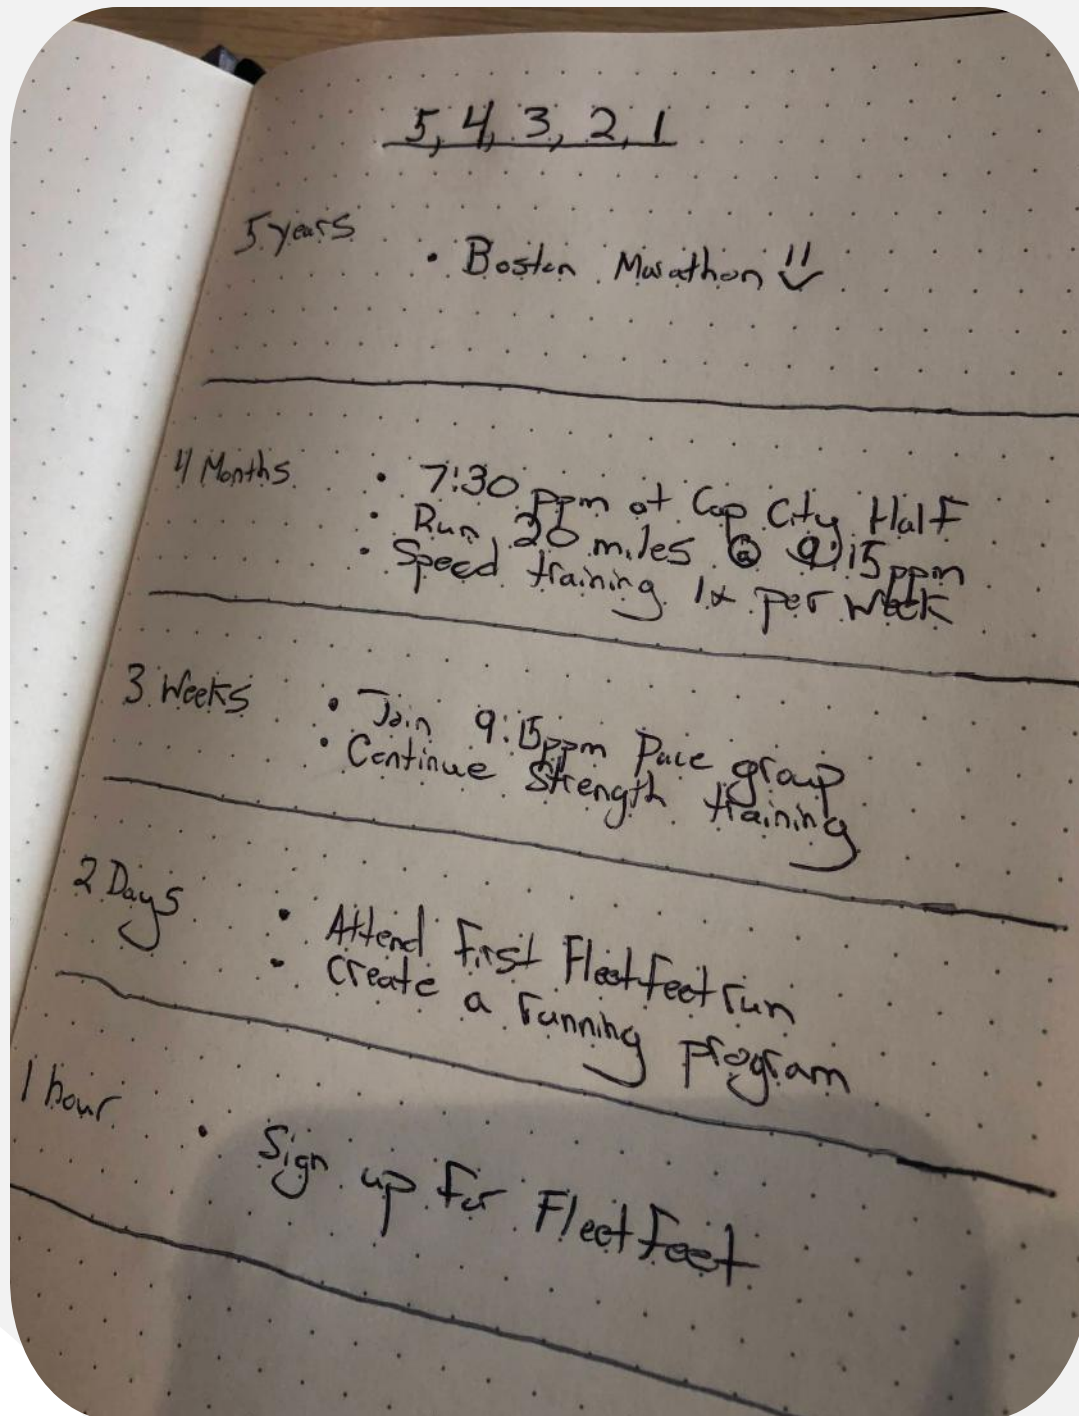 5, 4, 3, 2, 1
5 years
• Boston Marathon
4 Months
• 7:30 ppm at Cap City Half
• Run 20 miles @ 9:15 ppm
• Speed training 1x per week
3 Weeks
• Join 9:15ppm Pace group
• Continue Strength training
2 Days
• Attend First Fleetfeet run
• Create a running program
1 hour
• Sign up for Fleetfeet